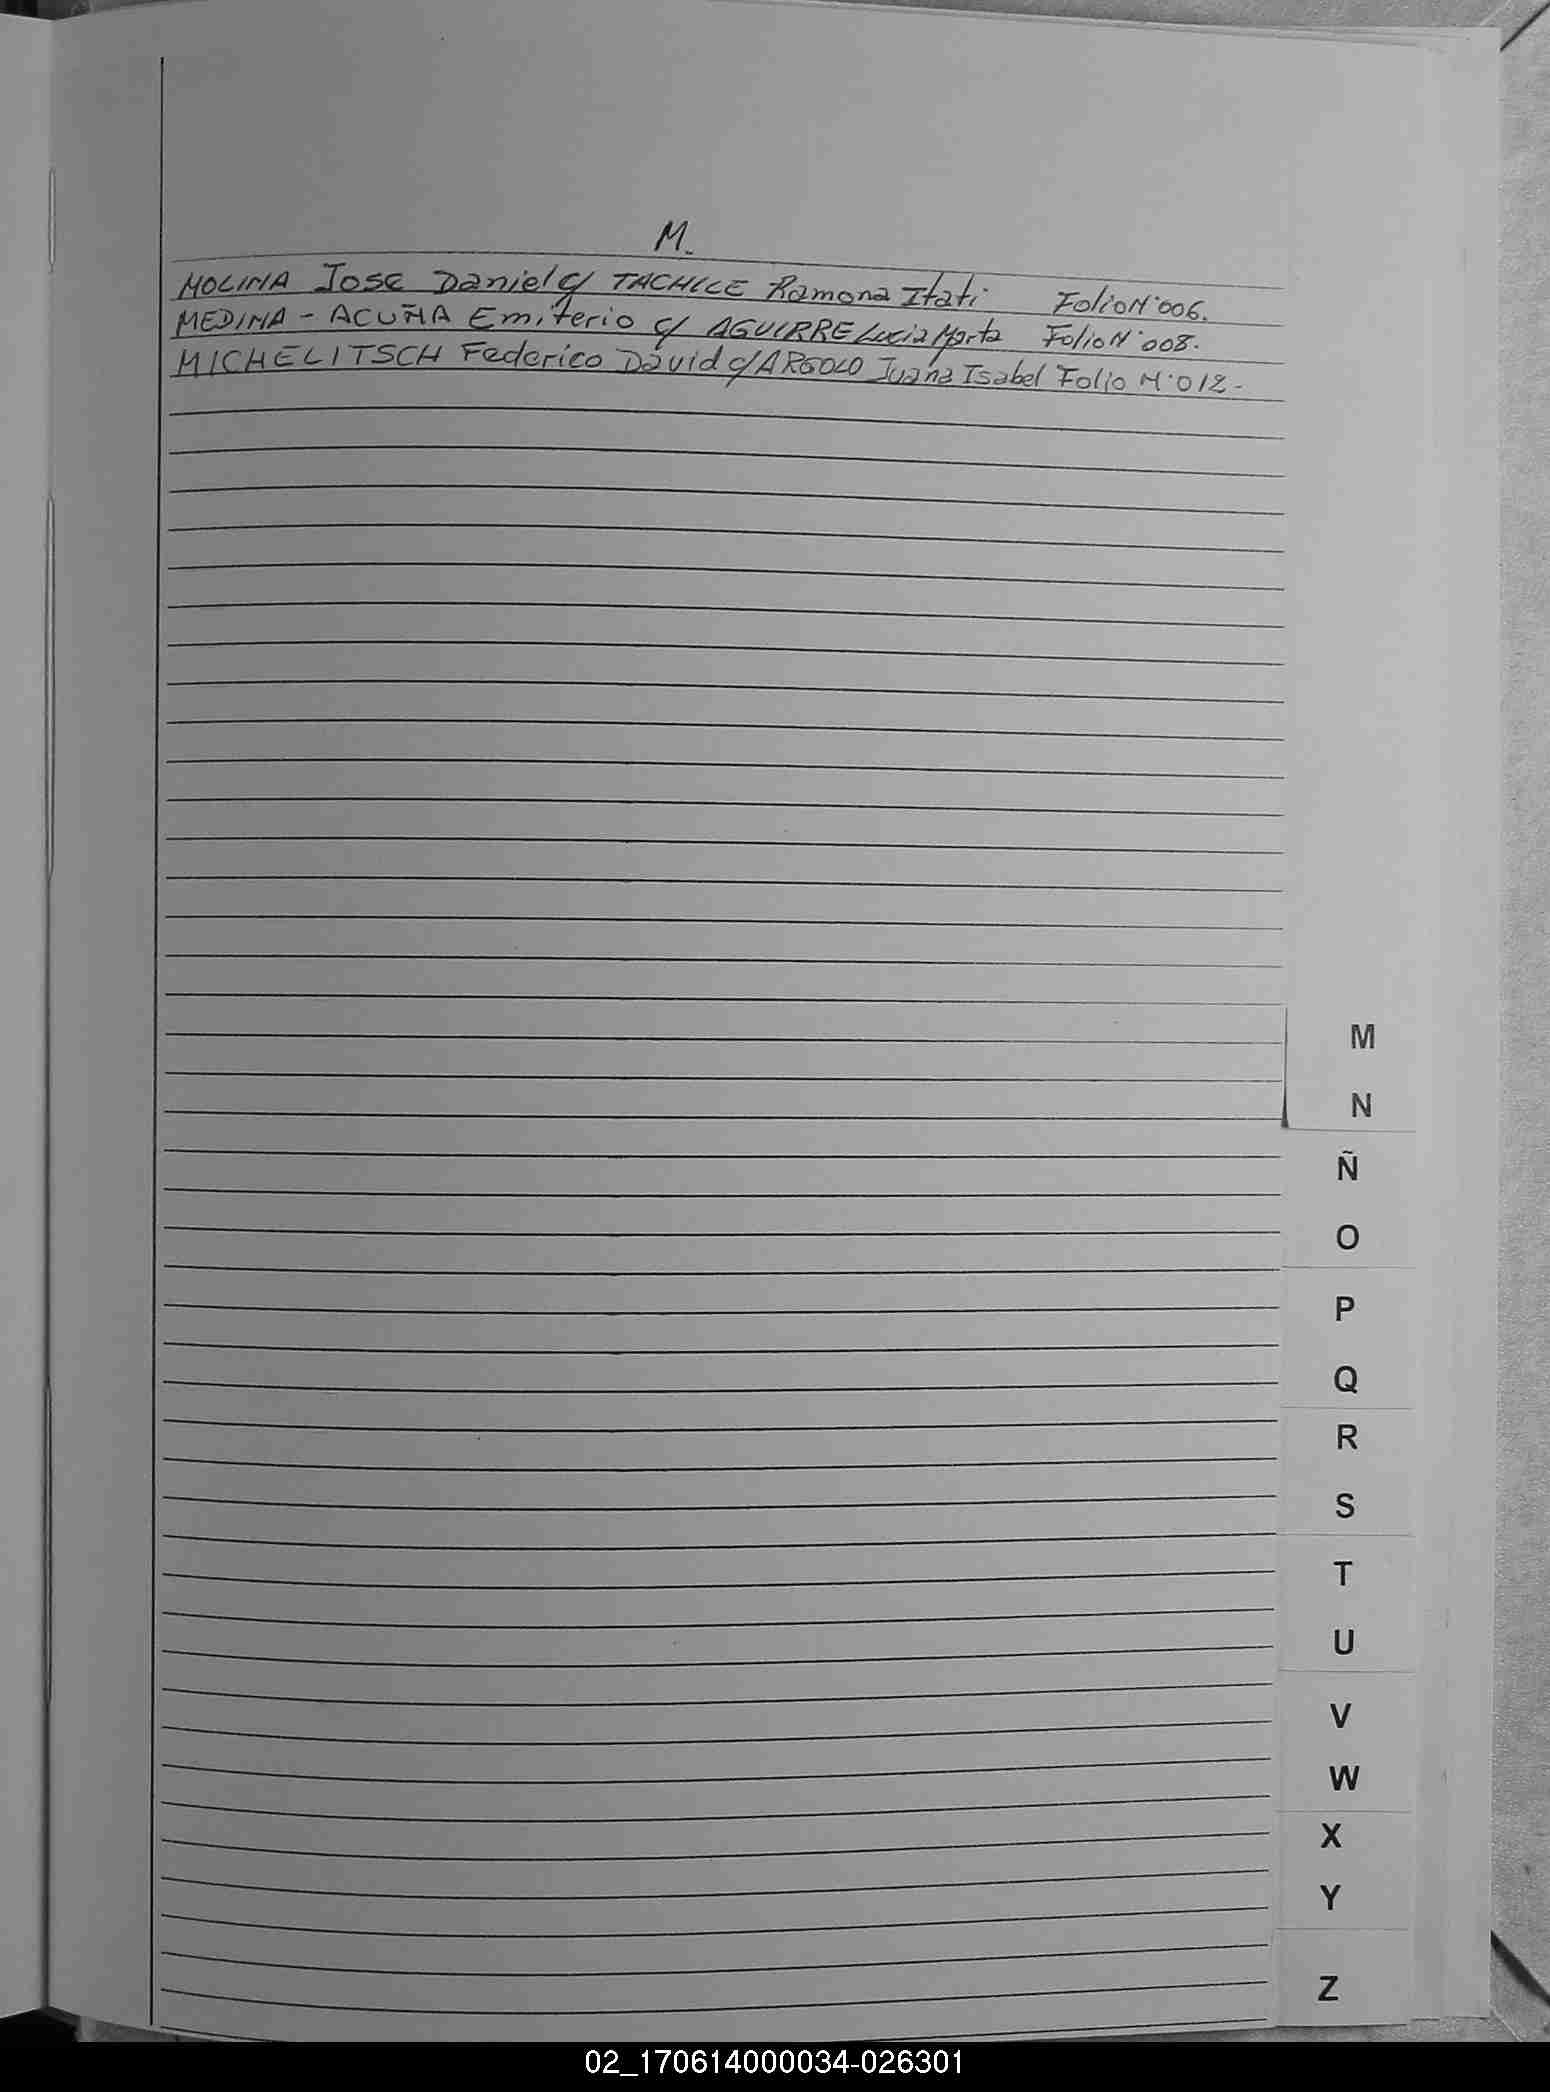 M.
MOLINA Jose Daniel c/ TACHILE Ramona Itati Folio N° 006.
MEDINA - ACUÑA Emiterio c/ AGUIRRE Lucia Marta Folio N° 008.
MICHELITSCH Federico David c/ ARGOLO Juana Isabel Folio N° 012-
M
N
Ñ
O
P
Q
R
S
T
U
V
W
X
Y
Z
02_170614000034-026301